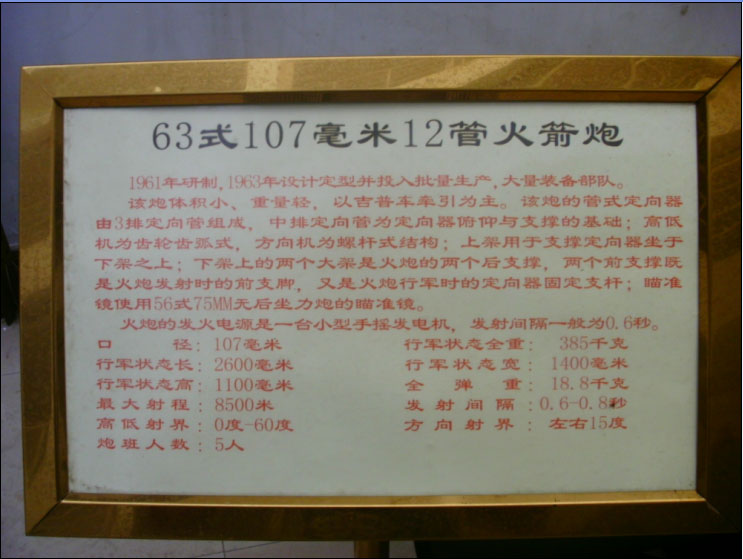 63式107毫米12管火箭炮
1961年研制,1963年设计定型并投入批量生产,大量装备部队。
该炮体积小、重量轻，以吉普车牵引为主。该炮的管式定向器
由3排定向管组成，中排定向管为定向器俯仰与支撑的基础；高低
机为齿轮齿弧式，方向机为螺杆式结构；上架用于支撑定向器坐于
下架之上；下架上的两个大架是火炮的两个后支撑，两个前支撑既
是火炮发射时的前支脚，又是火炮行军时的定向器固定支杆；瞄准
镜使用56式75MM无后坐力炮的瞄准镜。
火炮的发火电源是一台小型手摇发电机，发射间隔一般为0.6秒。
口 径：107毫米 行军状态全重： 385千克
行军状态长：2600毫米 行军状态宽：1400毫米
行军状态高：1100毫米 全 弹 重：18.8千克
最大射程：8500米 发射间隔：0.6-0.8秒
高低射界：0度-60度 方向射界：左右15度
炮班人数：5人